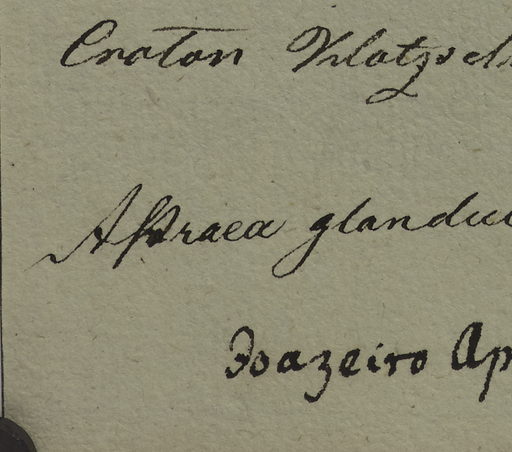 Croton Klotzsch
Astraea glandu
Joazeiro Ap